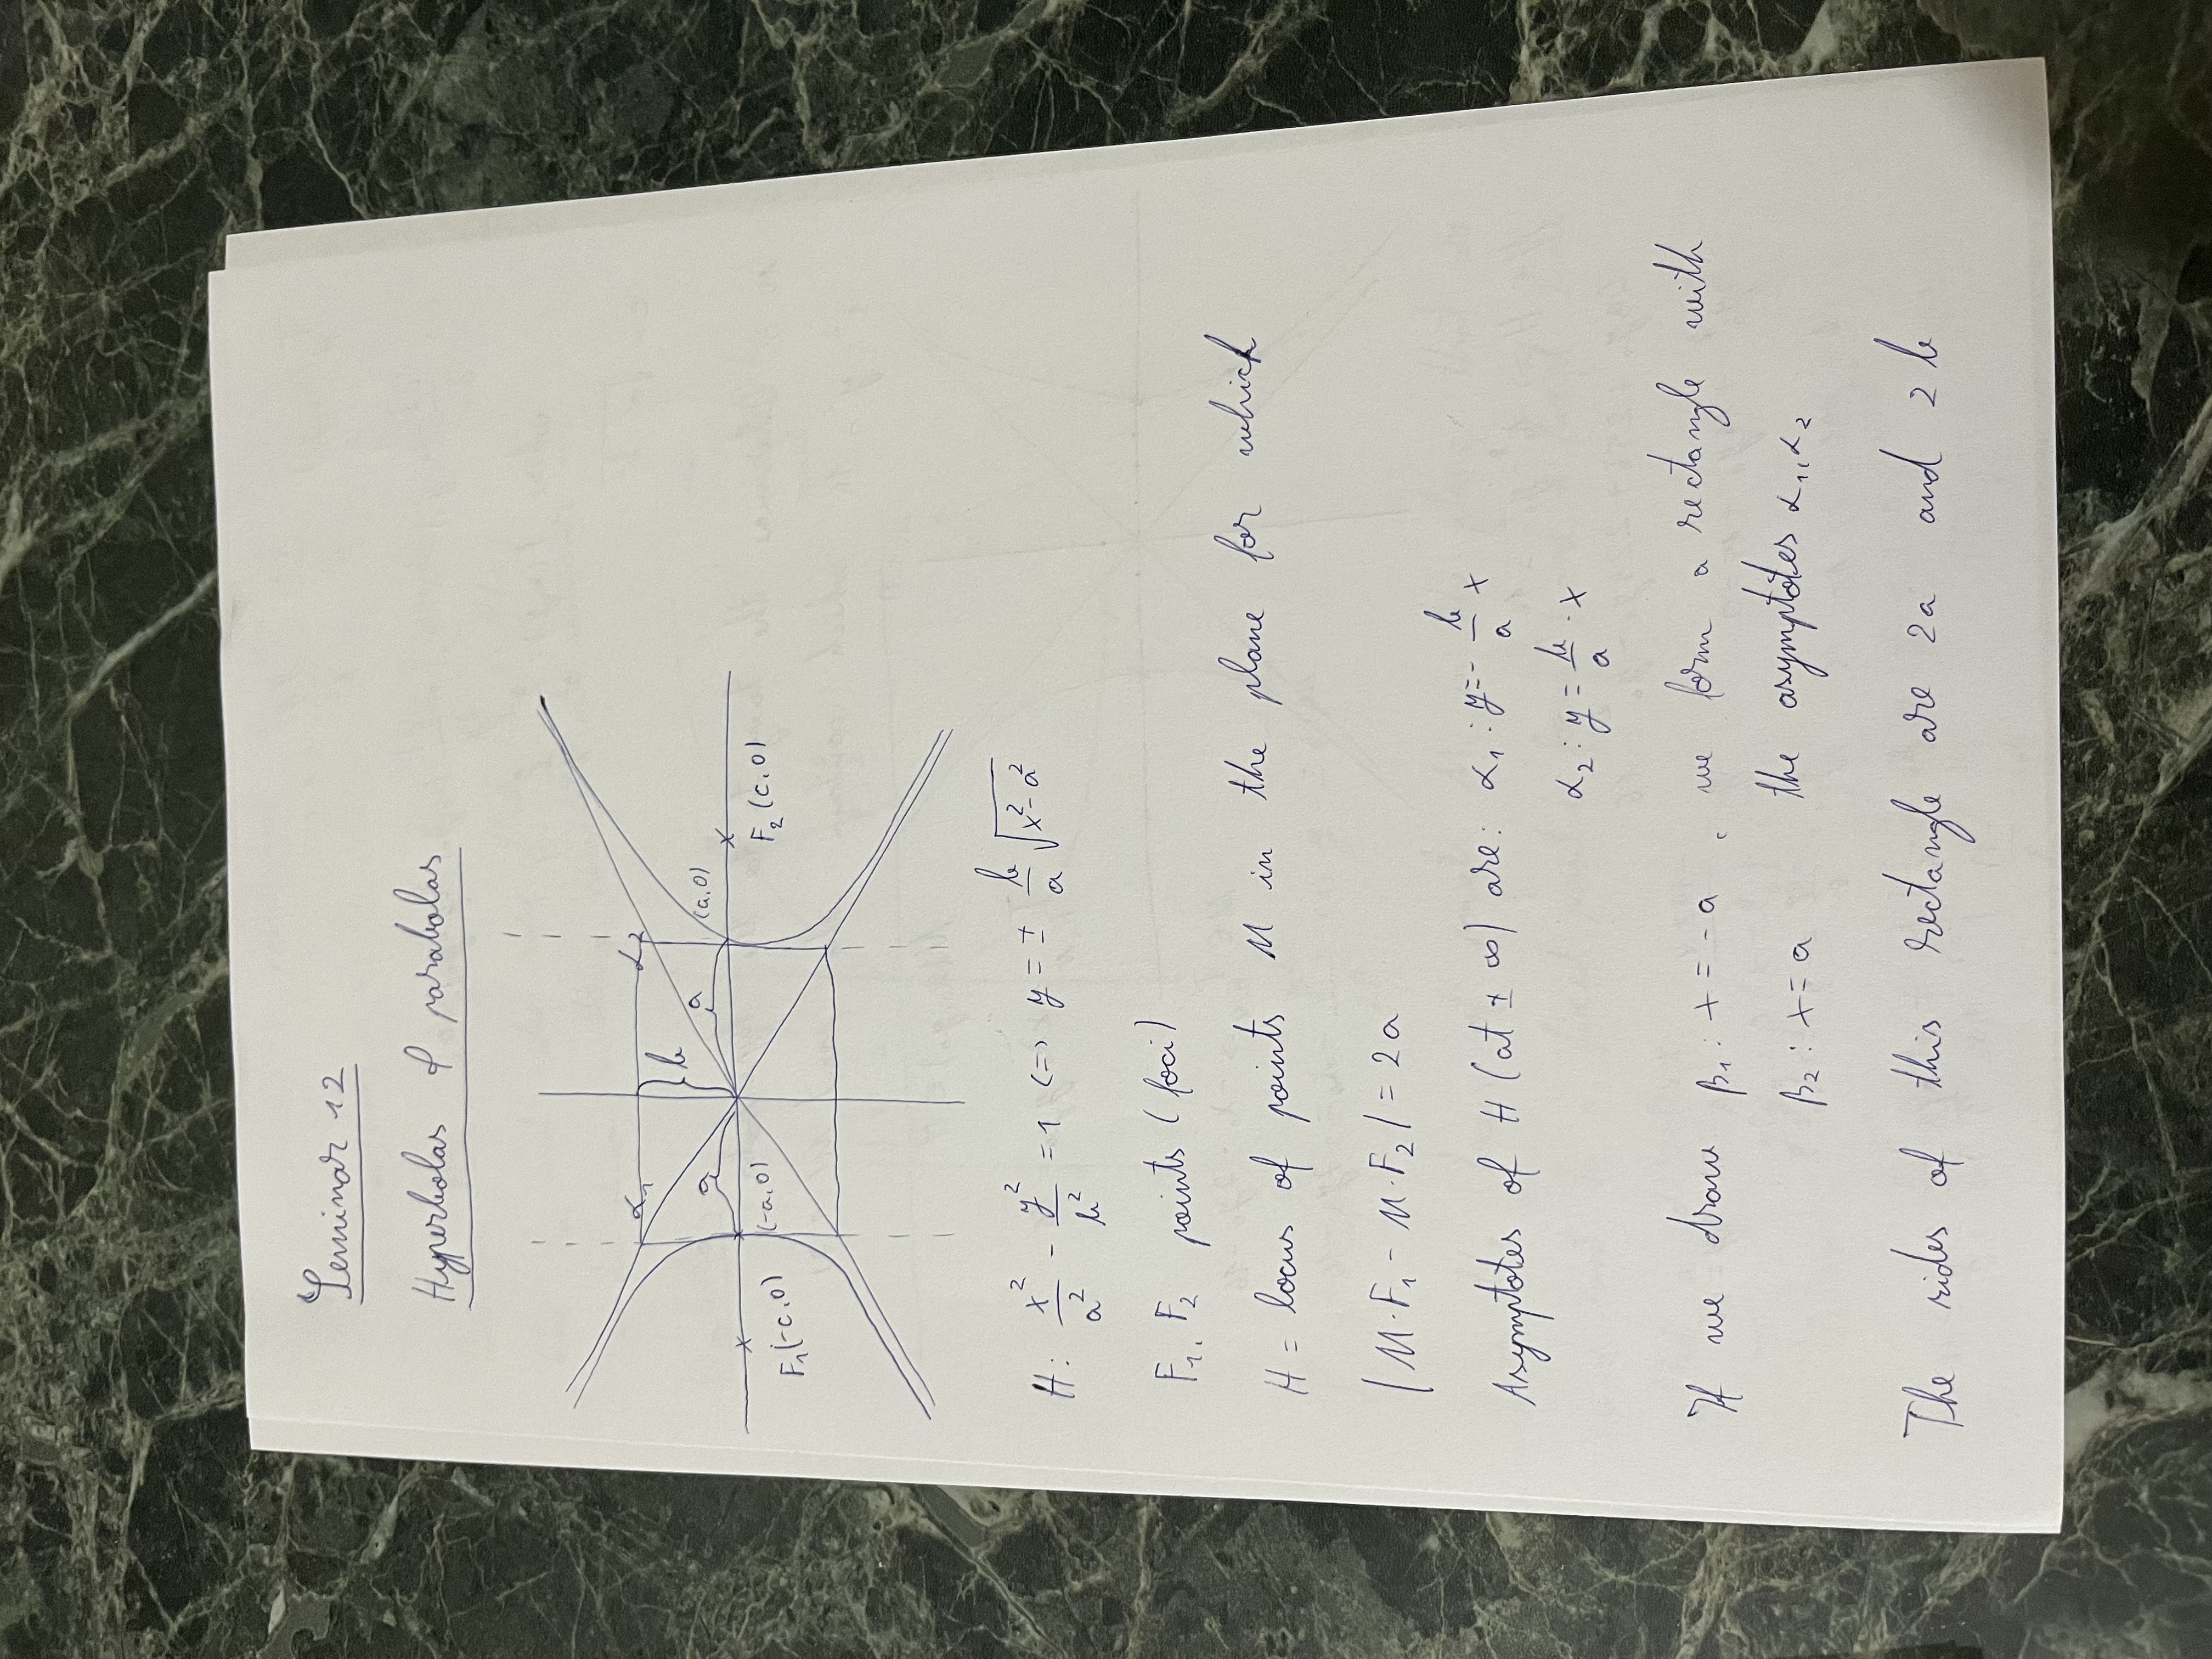 Seminar 12
Hyperbolas & parabolas
α₁ α₂
b
a a (a,0)
F₁(-c,0) (-a,0) F₂(c,0)
H: x²/a² - y²/b² = 1 <=> y = ± b/a √(x²-a²)
F₁, F₂ points (foci)
H = locus of points M in the plane for which
|M·F₁ - M·F₂| = 2a
Asymptotes of H (at ± ∞) are: α₁: y = - b/a x
α₂: y = b/a · x
If we draw β₁: x = -a , we form a rectangle with
β₂: x = a the asymptotes α₁, α₂
The sides of this rectangle are 2a and 2b